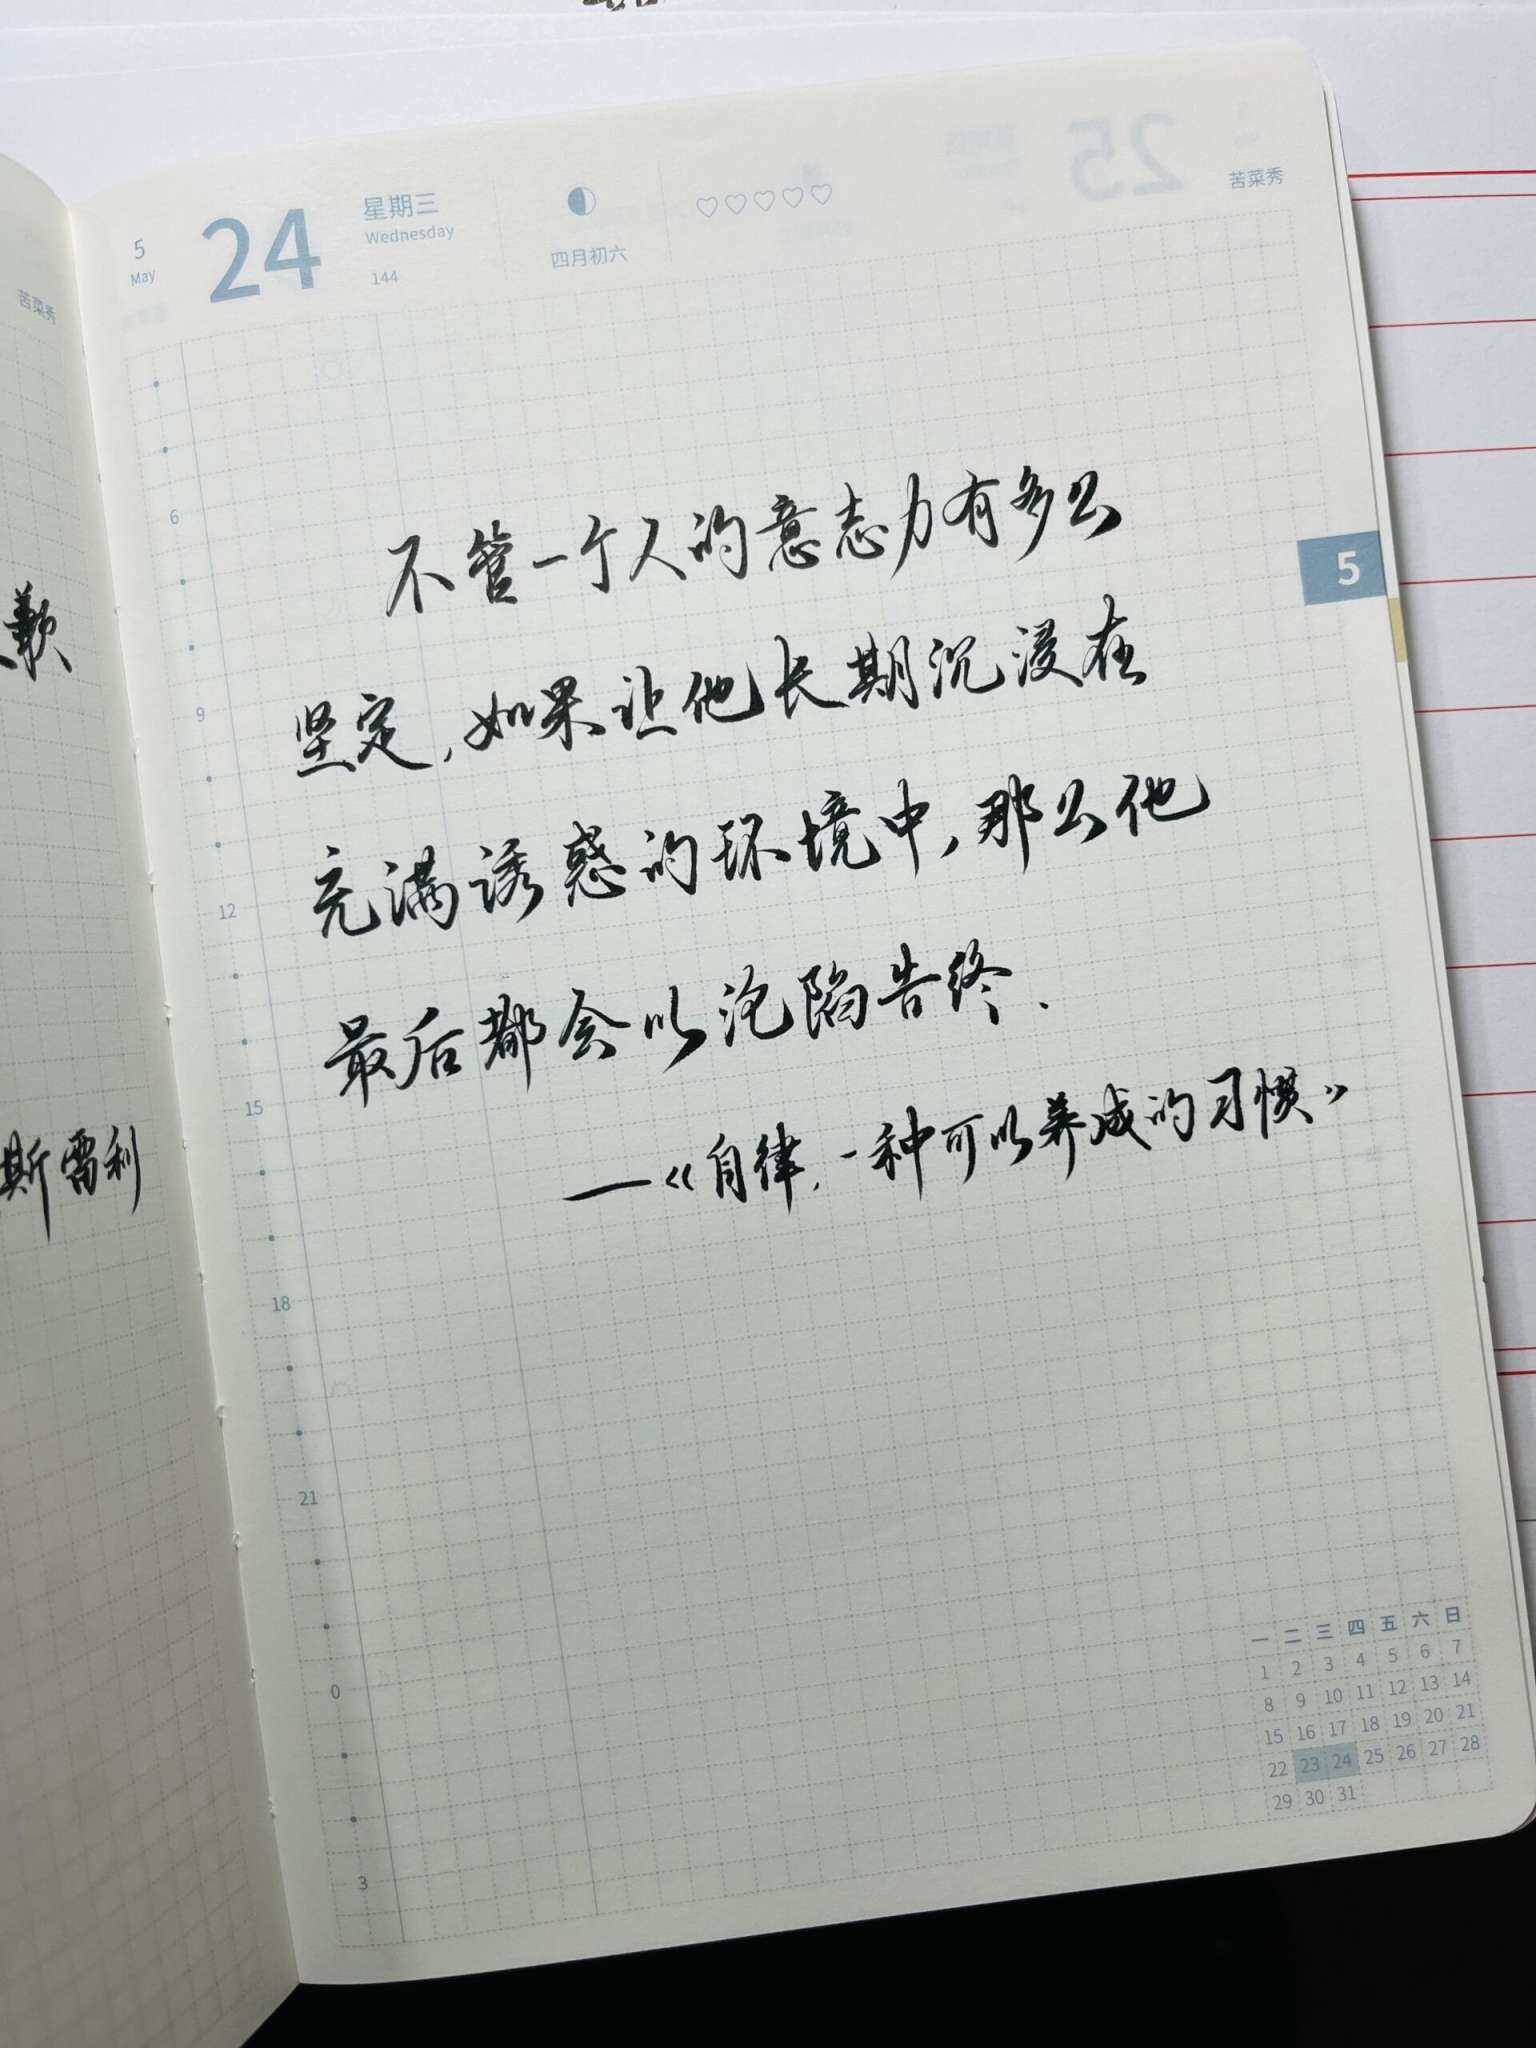 苦菜秀
歉
斯雷利
5
May
24
星期三
Wednesday
144
四月初六
苦菜秀
5
6
9
12
15
18
21
0
3
不管一个人的意志力有多么
坚定,如果让他长期沉浸在
充满诱惑的环境中,那么他
最后都会以沦陷告终.
—《自律,一种可以养成的习惯》
一 二 三 四 五 六 日
1 2 3 4 5 6 7
8 9 10 11 12 13 14
15 16 17 18 19 20 21
22 23 24 25 26 27 28
29 30 31